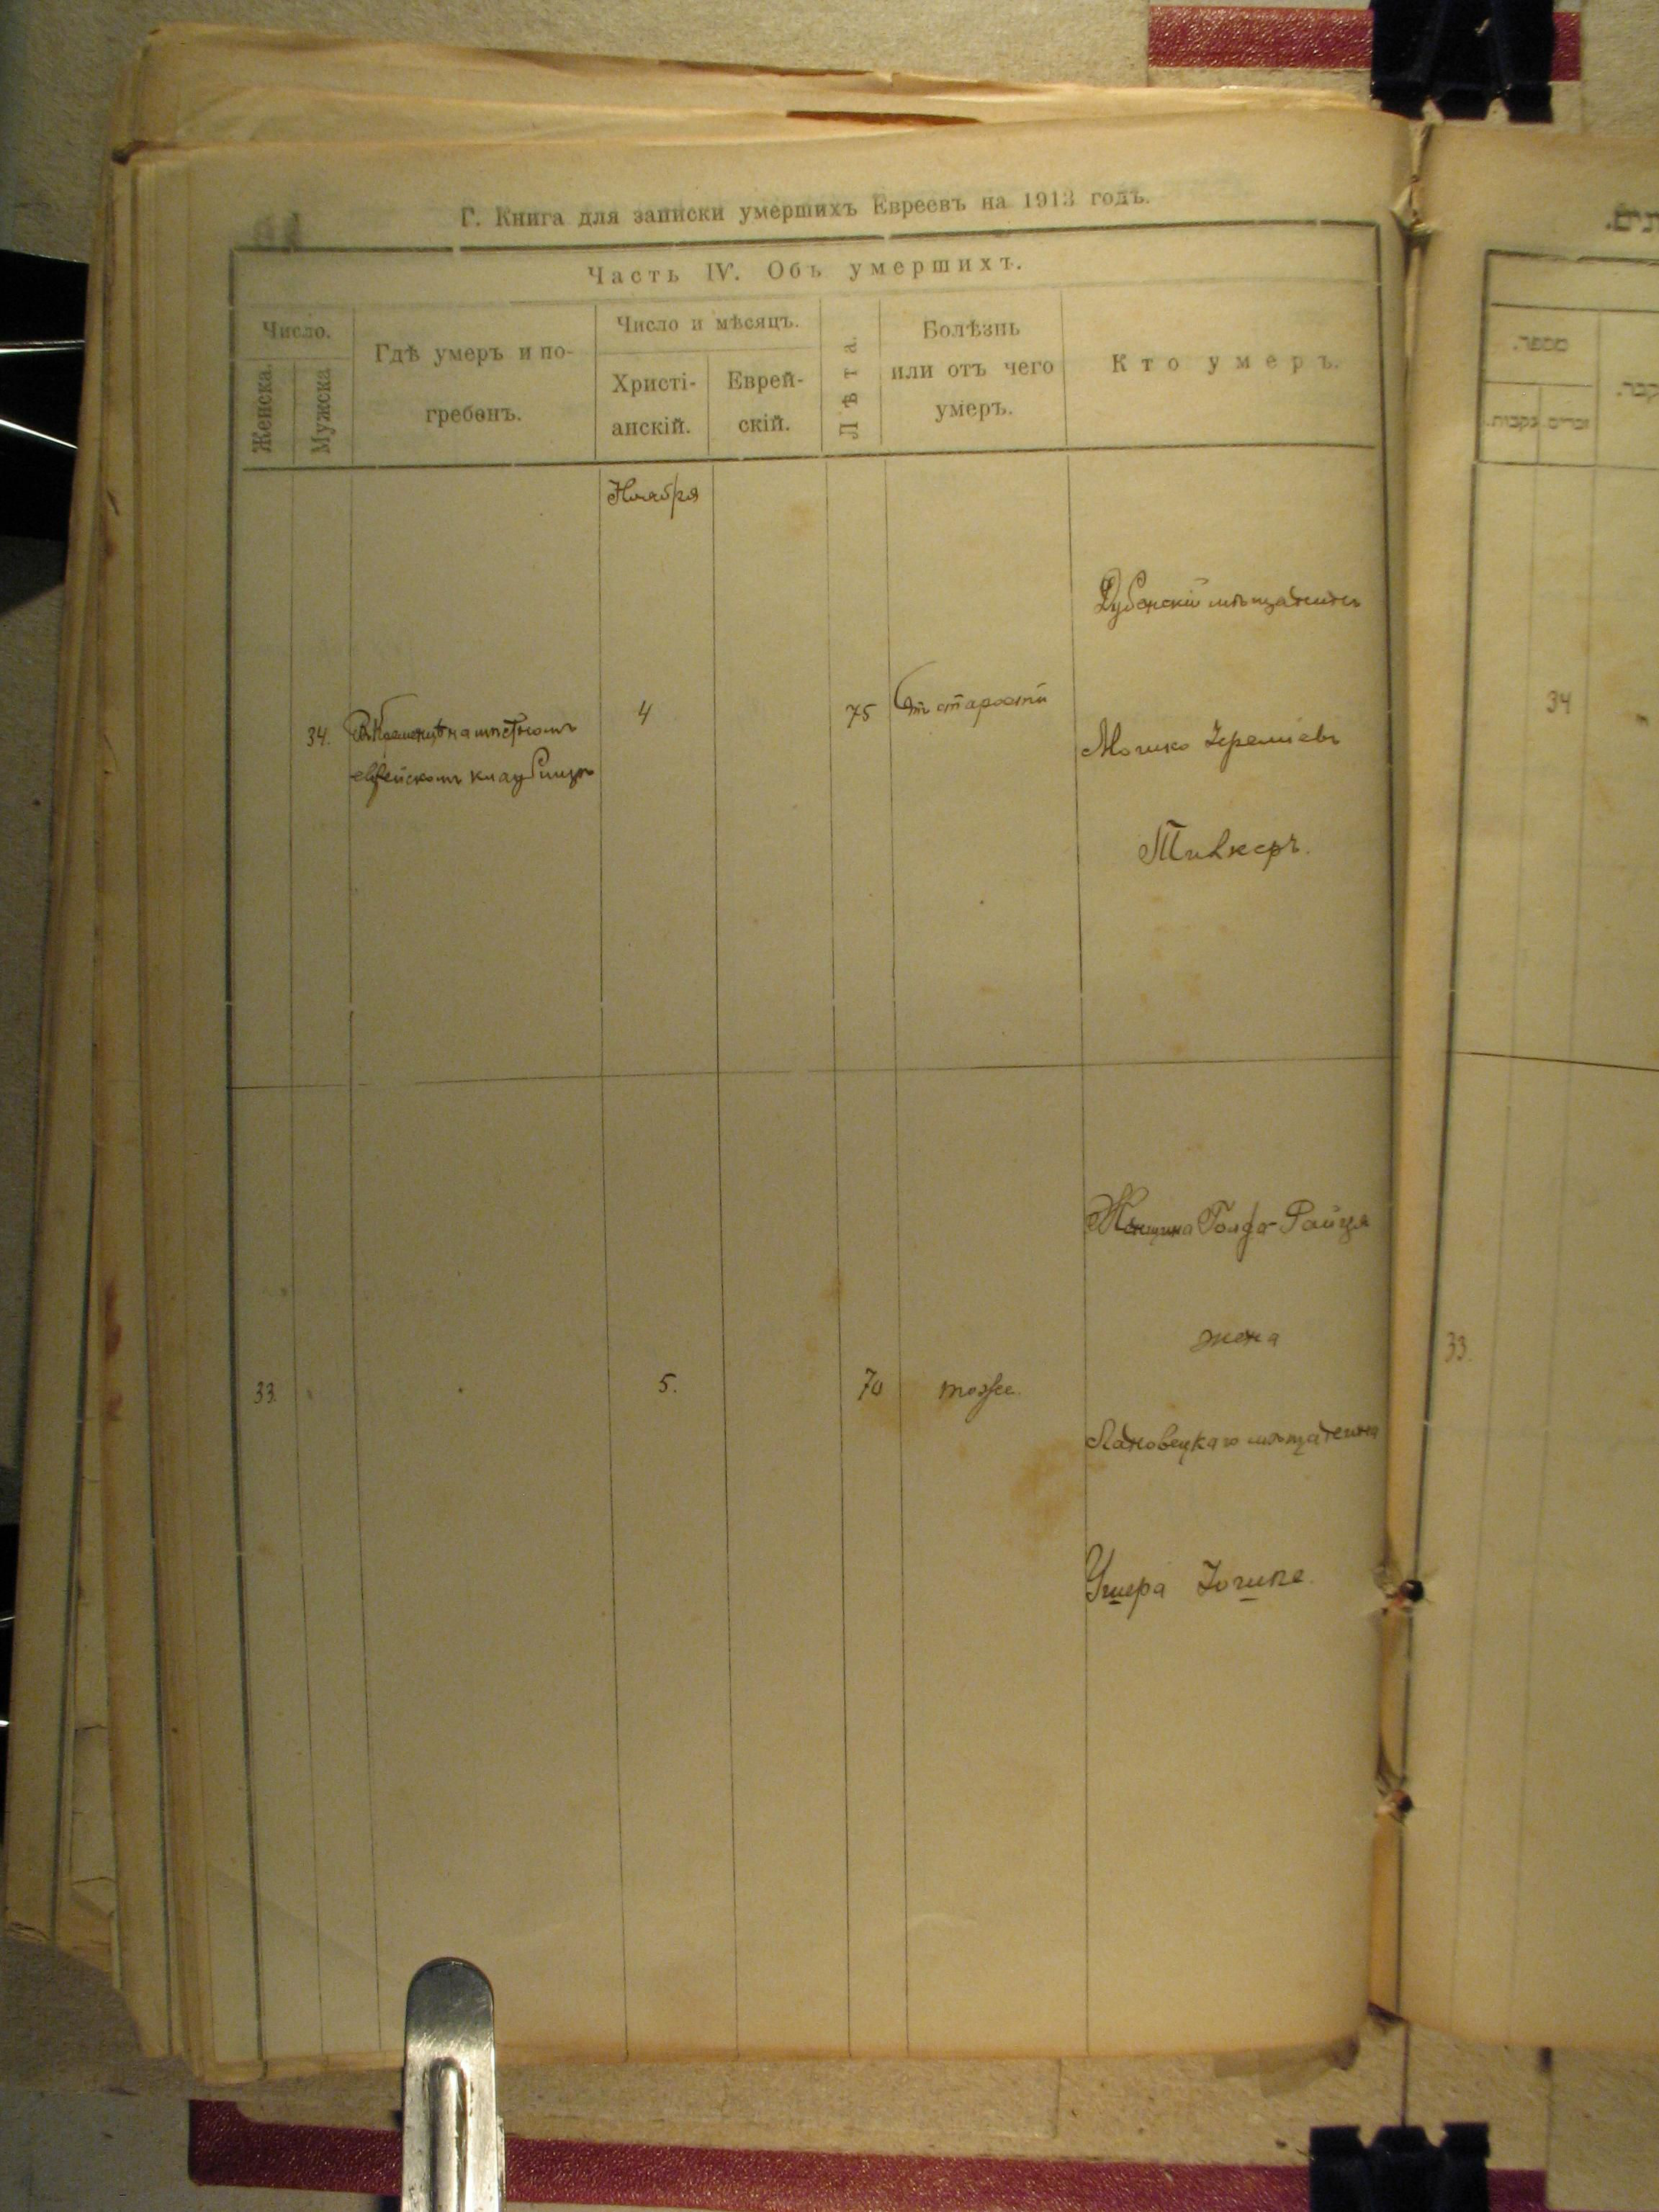 Г. Книга для записки умершихъ Евреевъ на 1913 годъ.
Часть IV. Объ умершихъ.
Число.
Женска.
Мужска
Гдѣ умеръ и по-
гребенъ.
Число и мѣсяцъ.
Христі-
анскій.
Еврей-
скій.
Лѣта.
Болѣзнь
или отъ чего
умеръ.
Кто умеръ.
Ноября
34.
Въ Кременцѣ на мѣстномъ
еврейскомъ кладбищѣ
4
75
От старости
Дубенскій мѣщанинъ
Мошко Іереміевъ
Тивкеръ.
33.
5.
70
тоже.
Женщина Голда-Райзя
жена
Лановецкаго мѣщанина
Ушера
מספר.
זכרים
נקבות.
34
33.